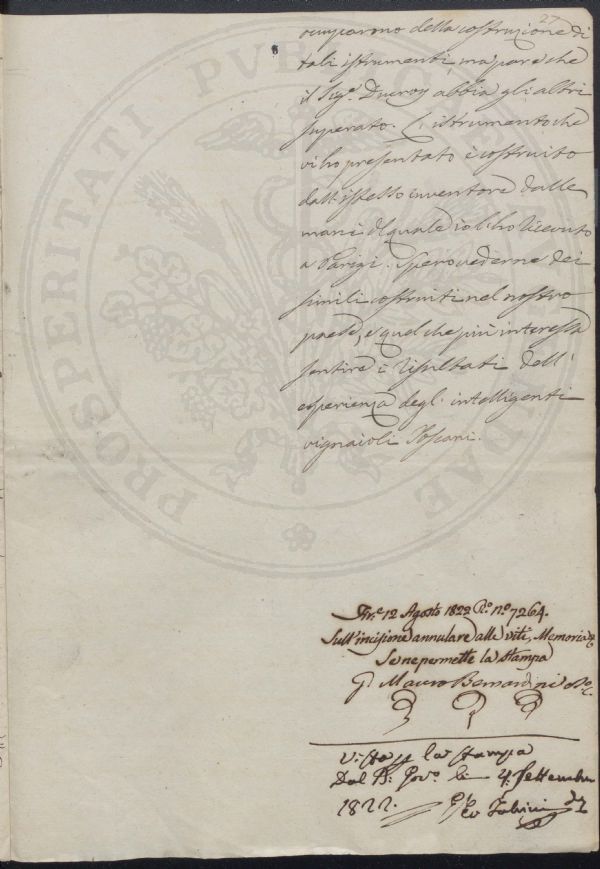 27
occuparono della costruzione di
tali istrumenti, ma pare che
il Sig.e Ducroy abbia gli altri
superato. L'istrumento che
vi ho presentato è costruito
dall'istesso inventore dalle
mani del quale io l'ho ricevuto
a Parigi. Spero vederne dei
simili costruiti nel nostro
paese, e quel che più interessa
sentire i risultati dell'
esperienza degl'intelligenti
vignaioli Toscani.
Fir.e 12 Agosto 1822 R.o n.o 7264.
Sull'incisione annulare alle viti, Memoria
Se ne permette la stampa
Mauro Bernardini
Visto p la stampa
Dal B. Gov.o li 4. Settembre
1822.
PROSPERITATI PUBLICAE